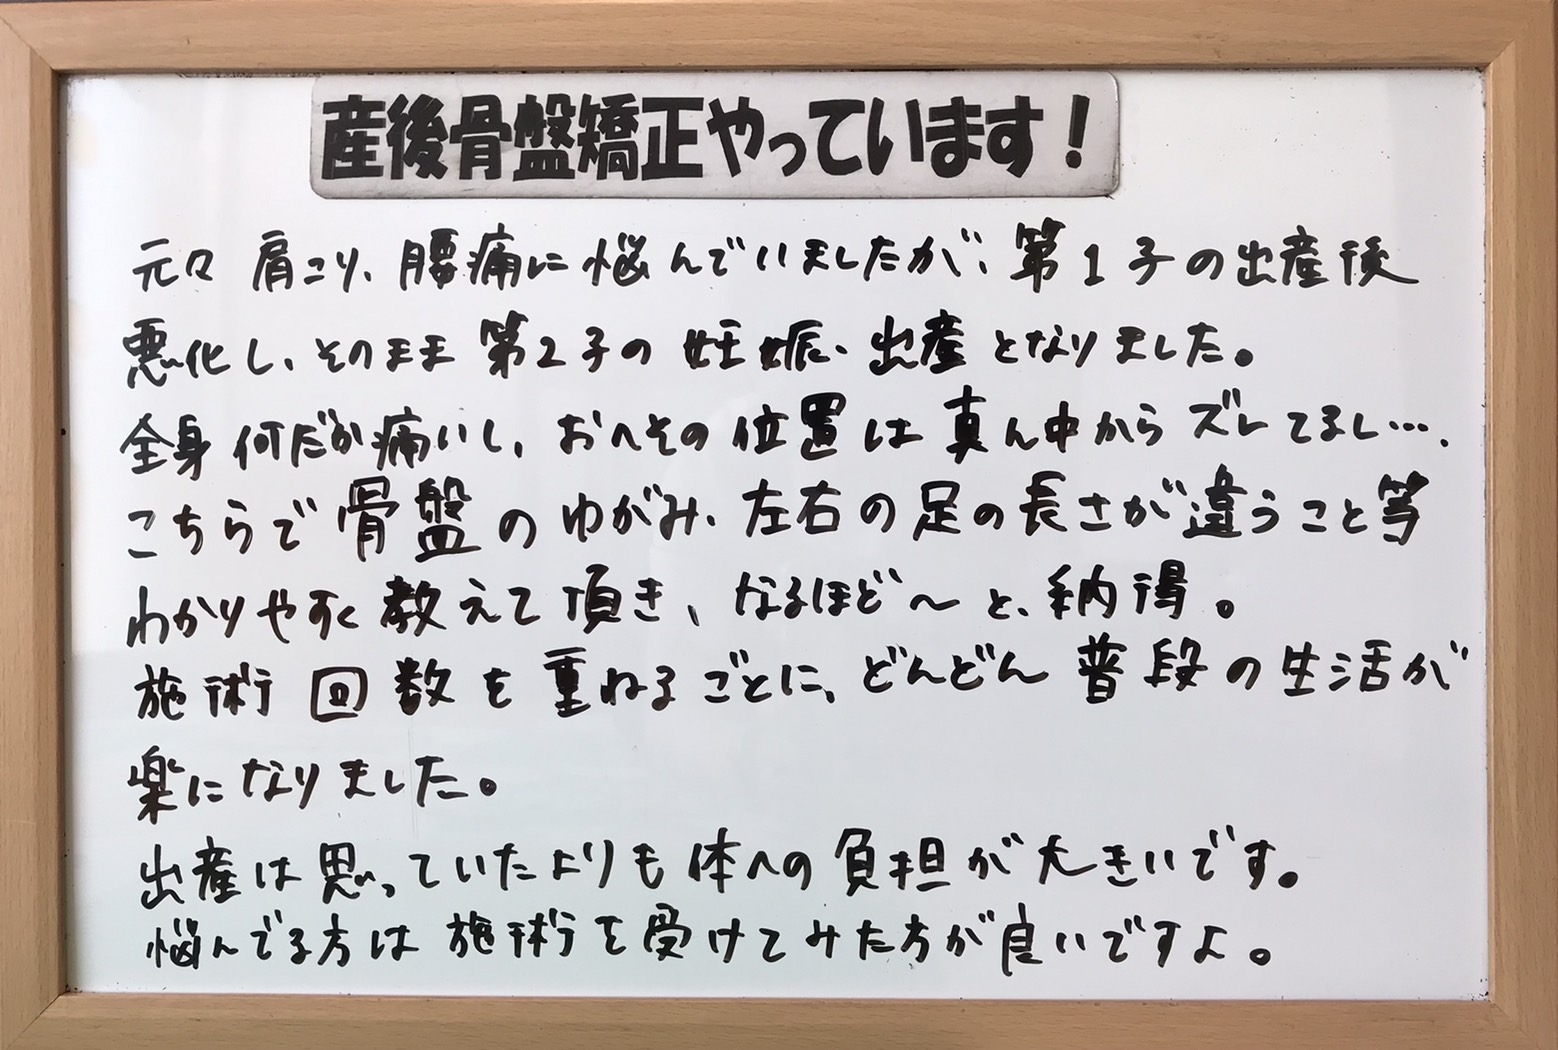 産後骨盤矯正やっています！
元々肩こり、腰痛に悩んでいましたが、第1子の出産後
悪化し、そのまま第2子の妊娠、出産となりました。
全身何だか痛いし、おへその位置は真ん中からズレてるし…。
こちらで骨盤のゆがみ、左右の足の長さが違うこと等
わかりやすく教えて頂き、なるほど〜と、納得。
施術回数を重ねるごとに、どんどん普段の生活が
楽になりました。
出産は思っていたよりも体への負担が大きいです。
悩んでる方は施術を受けてみた方が良いですよ。